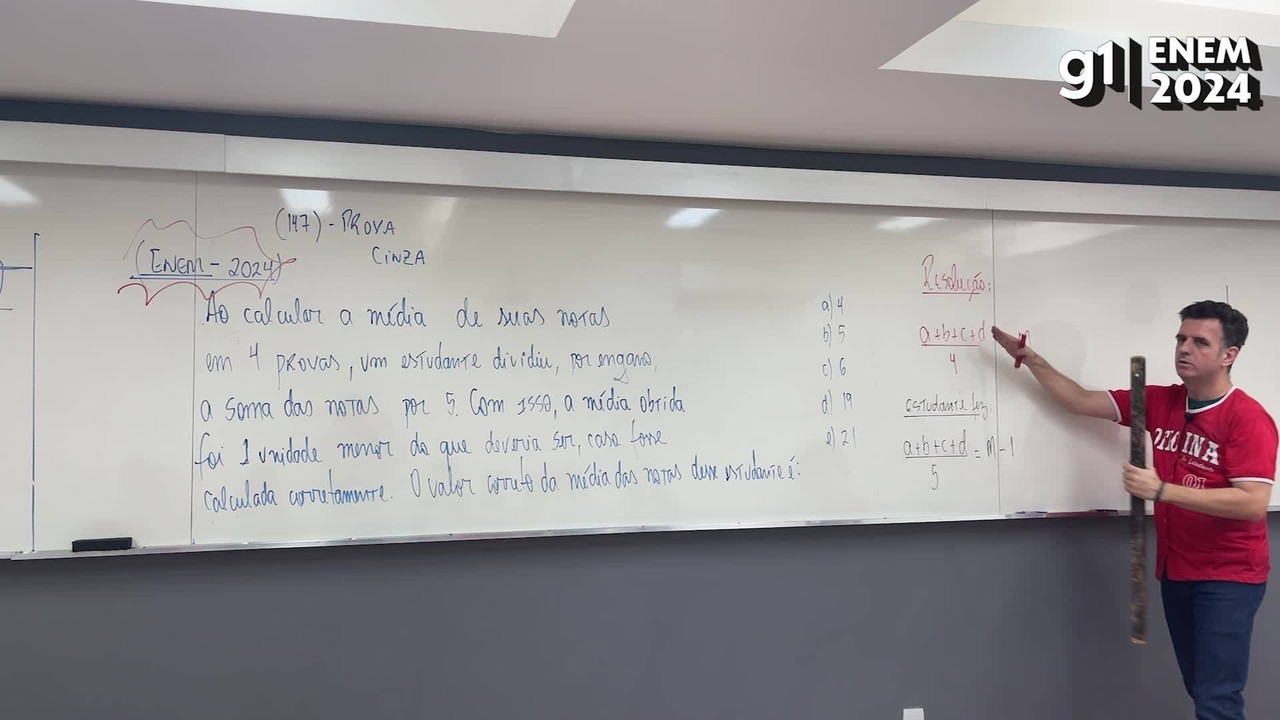 g1 ENEM 2024
(147) - PROVA
CINZA
(ENEM - 2024)
Ao calcular a média de suas notas
em 4 PROVAS, um estudante dividiu, por engano,
a soma das notas por 5. Com isso, a média obtida
foi 1 unidade menor do que deveria ser, caso fosse
calculada corretamente. O valor correto da média das notas desse estudante é:
a) 4
b) 5
c) 6
d) 19
e) 21
Resolução:
a+b+c+d
4
estudante fez:
a+b+c+d = m - 1
5
OFICINA
01